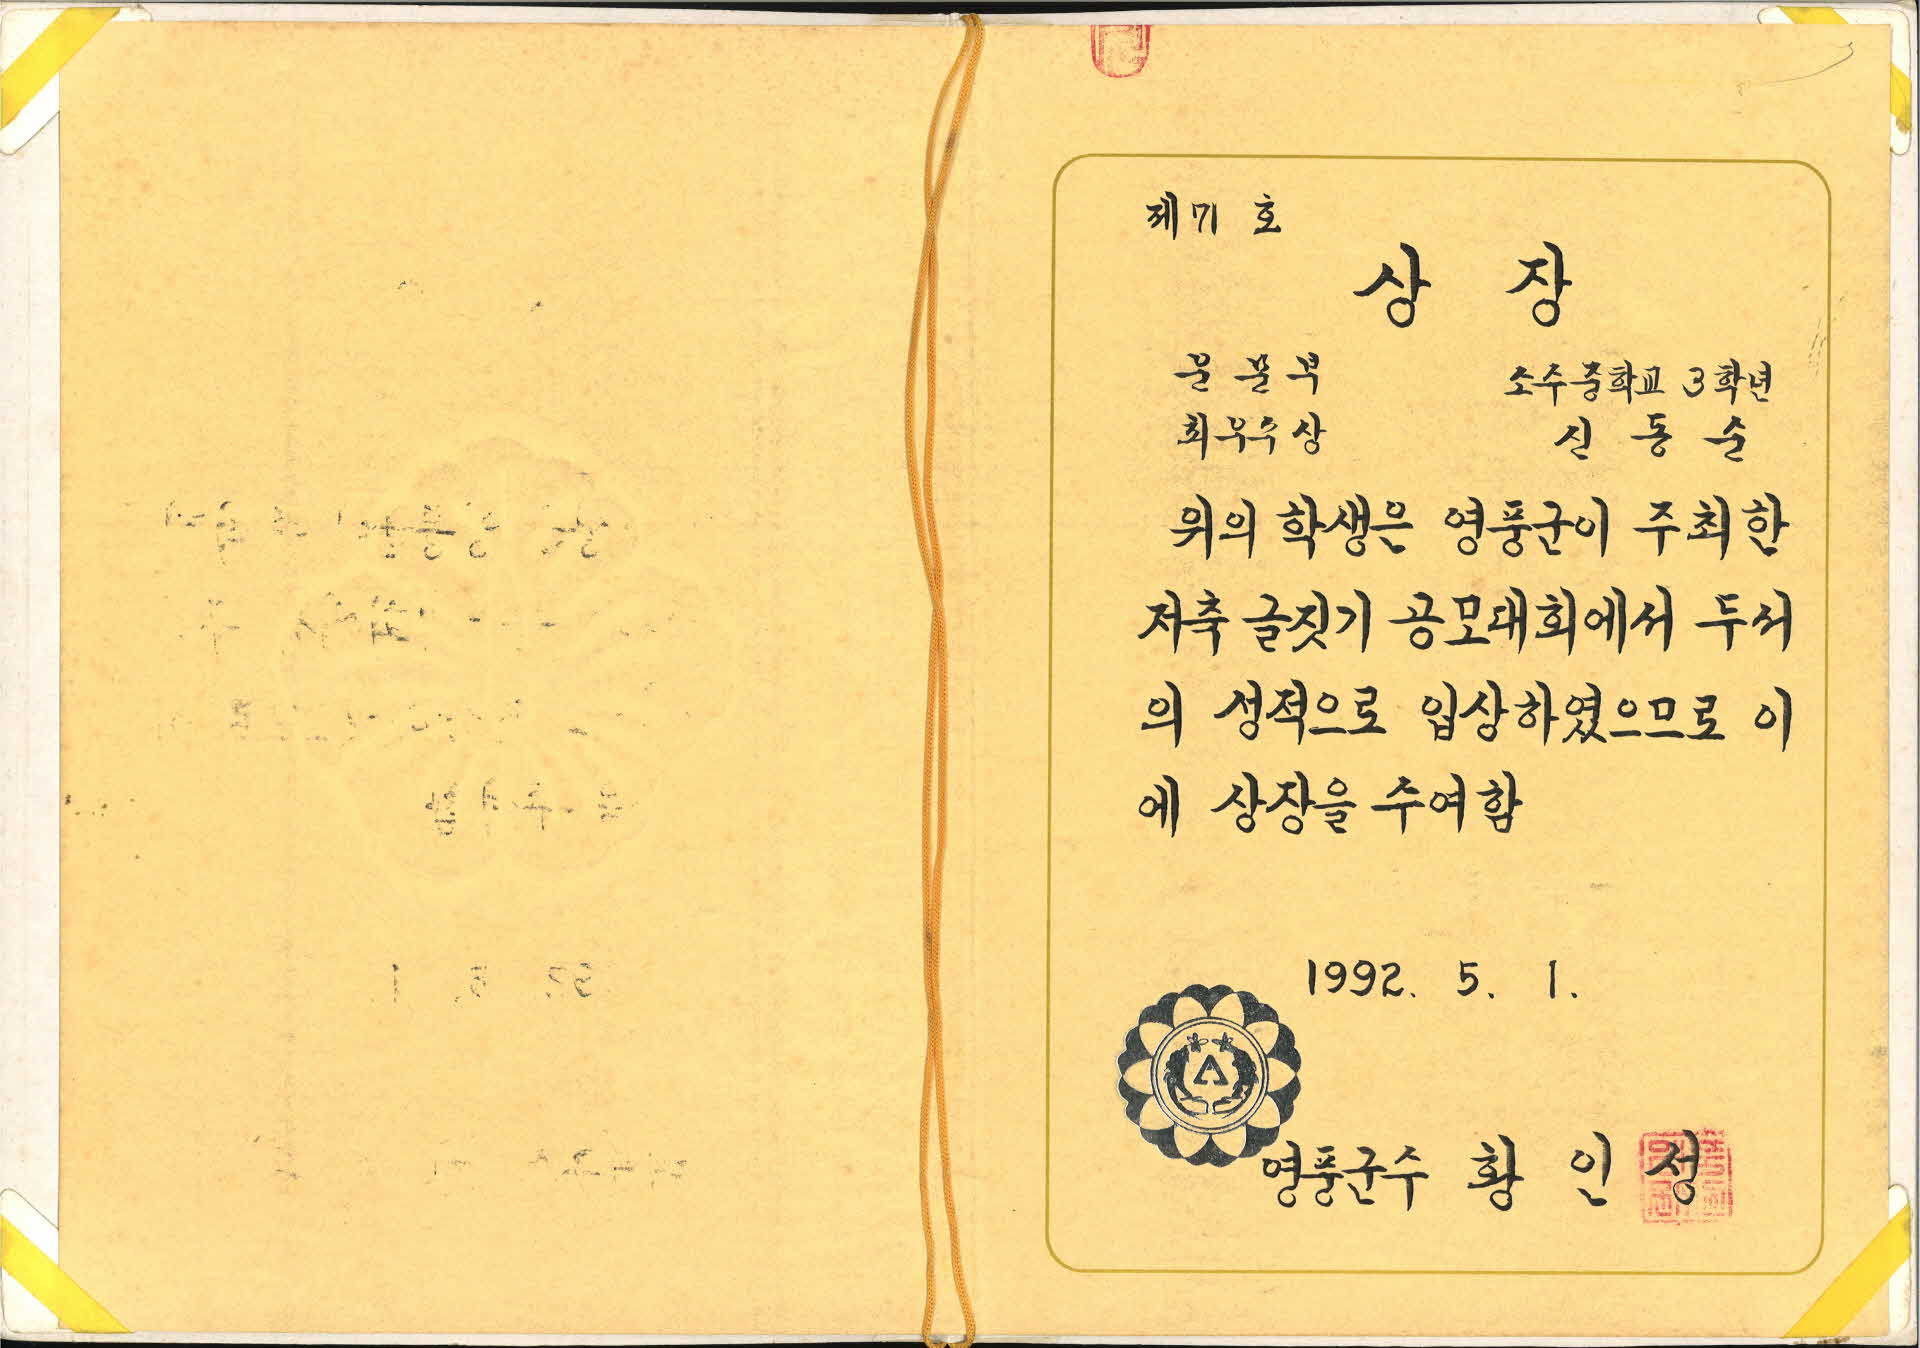 제 71 호
상 장
운문부
최우수상
소수중학교 3학년
신 동 순
위의 학생은 영풍군이 주최한
저축 글짓기 공모대회에서 두서
의 성적으로 입상하였으므로 이
에 상장을 수여함
1992. 5. 1.
영풍군수 황 인 성